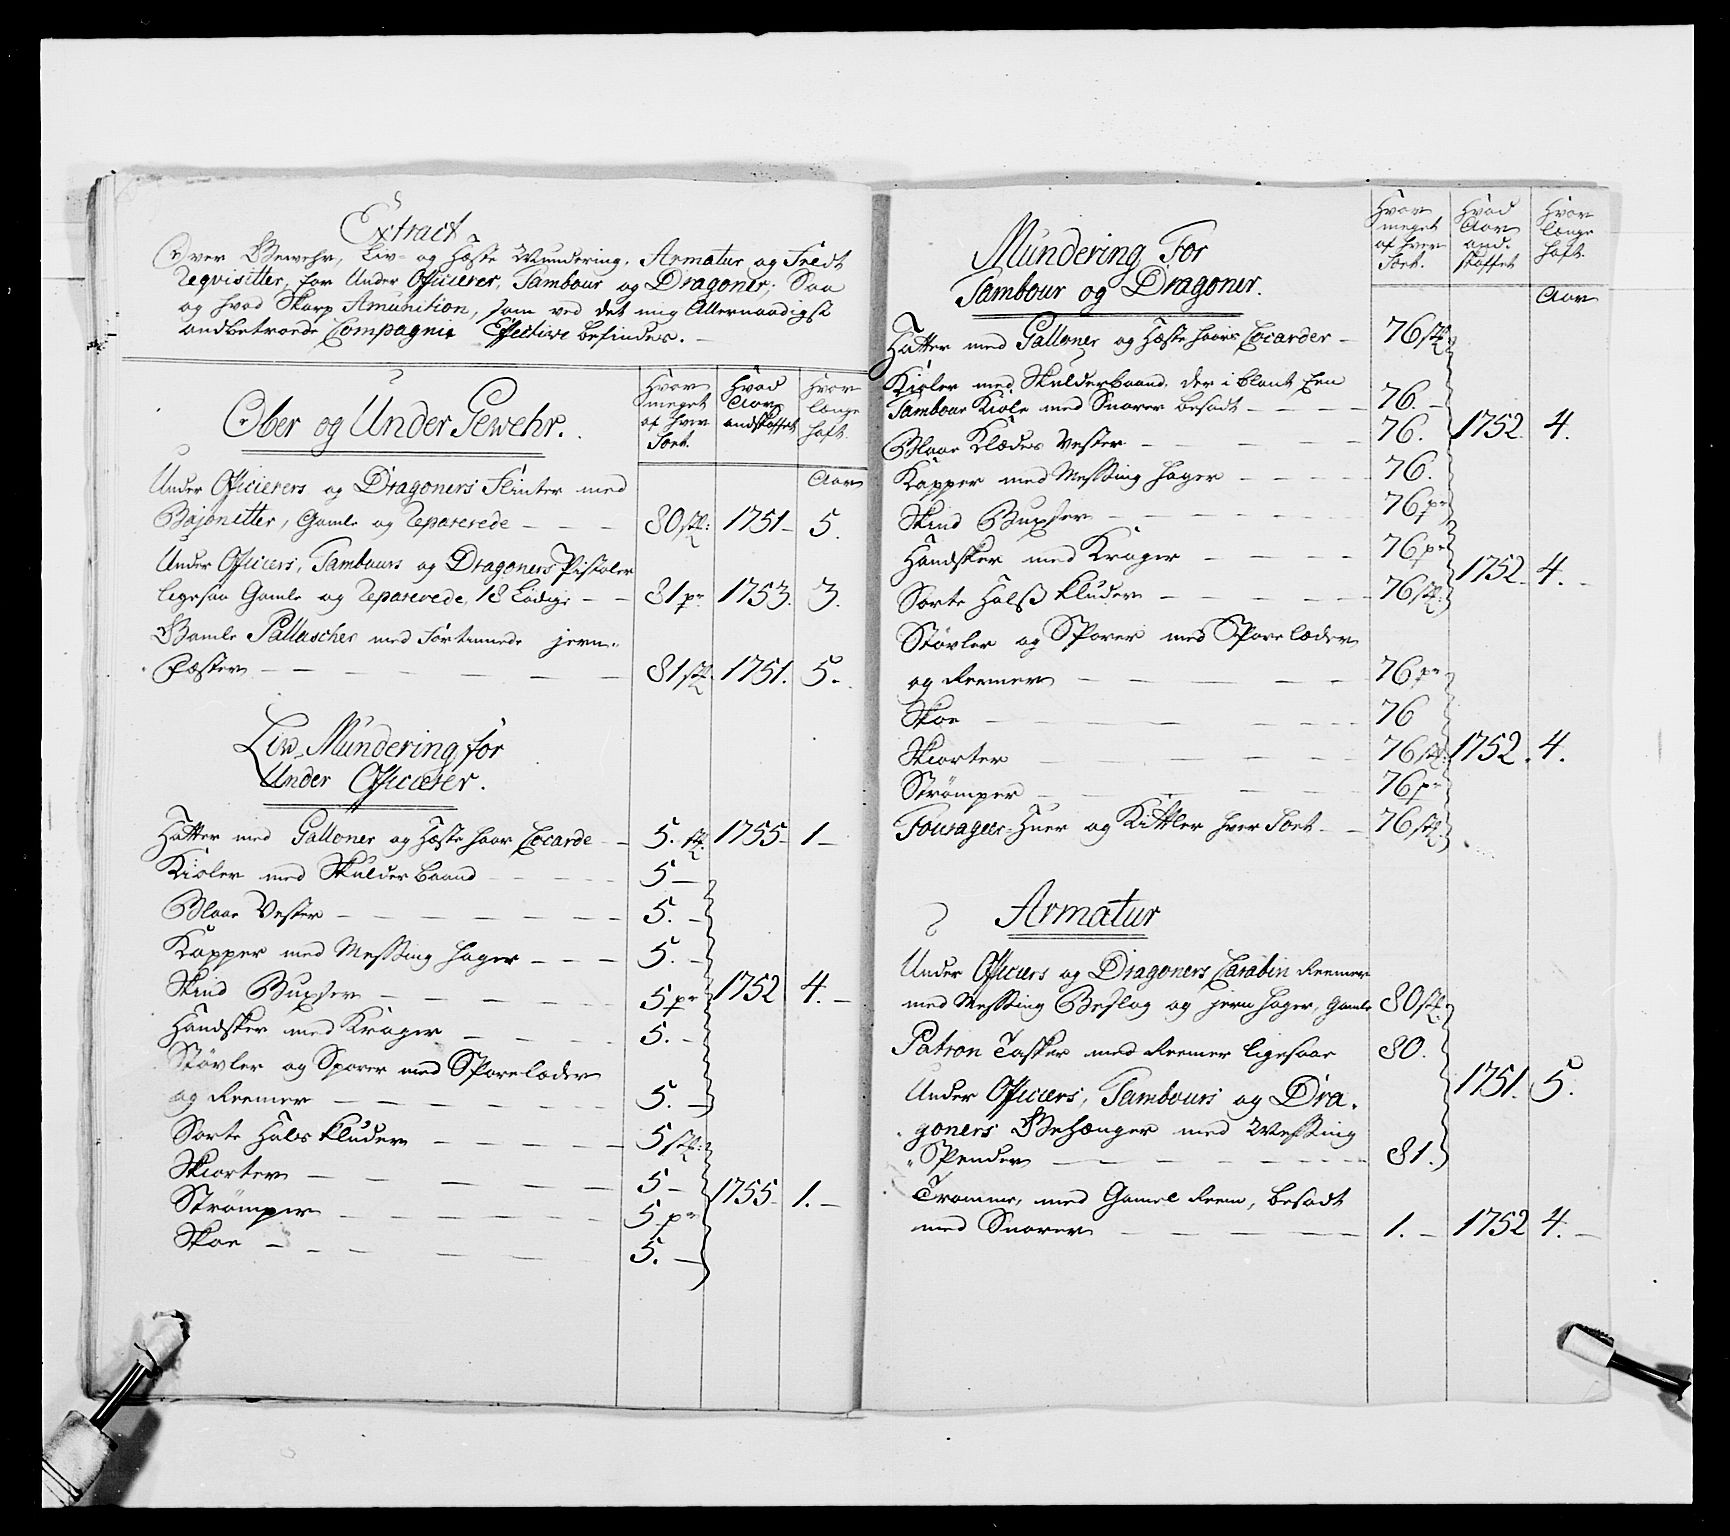 Extract
Over Gewehr, Liv- og Hæste Mundering, Armatur og Feldt
Reqvisitter, for Under Officierer, Tambour og Dragoner; Saa
og hvad Skarp Amunition, som ved det mig Allernaadigst
andbetroede Compagnie Effective befindes.
Hvor meget af hver Sort.
Hvad Aar andskaffet
Hvor længe haft.
Aar
Ober og Under Gewehr.
Under Officierers og Dragoners Flinter med
Bajonetter, Gamle og Reparerede — — — 80 stk: 1751 — 5.
Under Officiers, Tambours og Dragoners Pistoler
ligesaa Gamle og Reparerede, 18 Lödige — — 81 pr 1753. 3.
Gamle Pallascher med Fortinnede jern-
Fæster — — — — — — 81 stk. 1751. 5.
Liv-Mundering for
Under Officierer.
Hatter med Galloner og Hæstehaar Cocarde — 5. stk. 1755 — 1 —
Kioler med Skulderbaand — — — — 5 —
Blaae Vester — — — — — — 5. —
Kapper med Messing Hager — — — 5. —
Skind Buxser — — — — — 5 pr 1752 4. —
Handsker med Krager — — — — 5. —
Støvler og Sporer med Sporelæder
og Reemer — — — — — — 5. —
Sorte Halskluder — — — — 5 stk:
Skiorter — — — — — — 5 —
Strömper — — — — — — 5 pr 1755 — 1. —
Skoe — — — — — — 5. —
Mundering For
Tambour og Dragoner.
Hvor meget af hver Sort.
Hvad Aar and-skaffet
Hvor længe haft.
Aar
Hatter med Galloner og Hæstehaars Cocarder — 76 stk
Kioler med Skulderbaand, der i blant Een
Tambour Kiole med Snorer besadt — — — — 76. —
Blaae Klædes Vester — — — — — 76. 1752. 4.
Kapper med Messing Hager — — — — 76.
Skind Buxser — — — — — — 76 pr
Handsker med Krager — — — — 76 pr
Sorte Halß kluder — — — — — 76 stk. 1752. 4. —
Støvler og Sporer med Sporelæder
og Reemer — — — — — — 76 pr
Skoe — — — — — — 76
Skiorter — — — — — — 76 stk. 1752. 4.
Strømper — — — — — — 76 pr
Fourageer-Huer og Kittler hver Sort — — 76 stk.
Armatur
Under Officiers og Dragoners Carabin Reemer
med Messing Beslag og jern Hager, Gamle 80 stk.
Patron Tasker med Reemer ligesaa 80.
Under Officiers, Tambours og Dra- 1751. 5.
goners Gehænger med Messing
Spender — — — — — — 81.
Tromme, med Gamel Reem, besadt
med Snorer — — — — — 1. — 1752 4. —